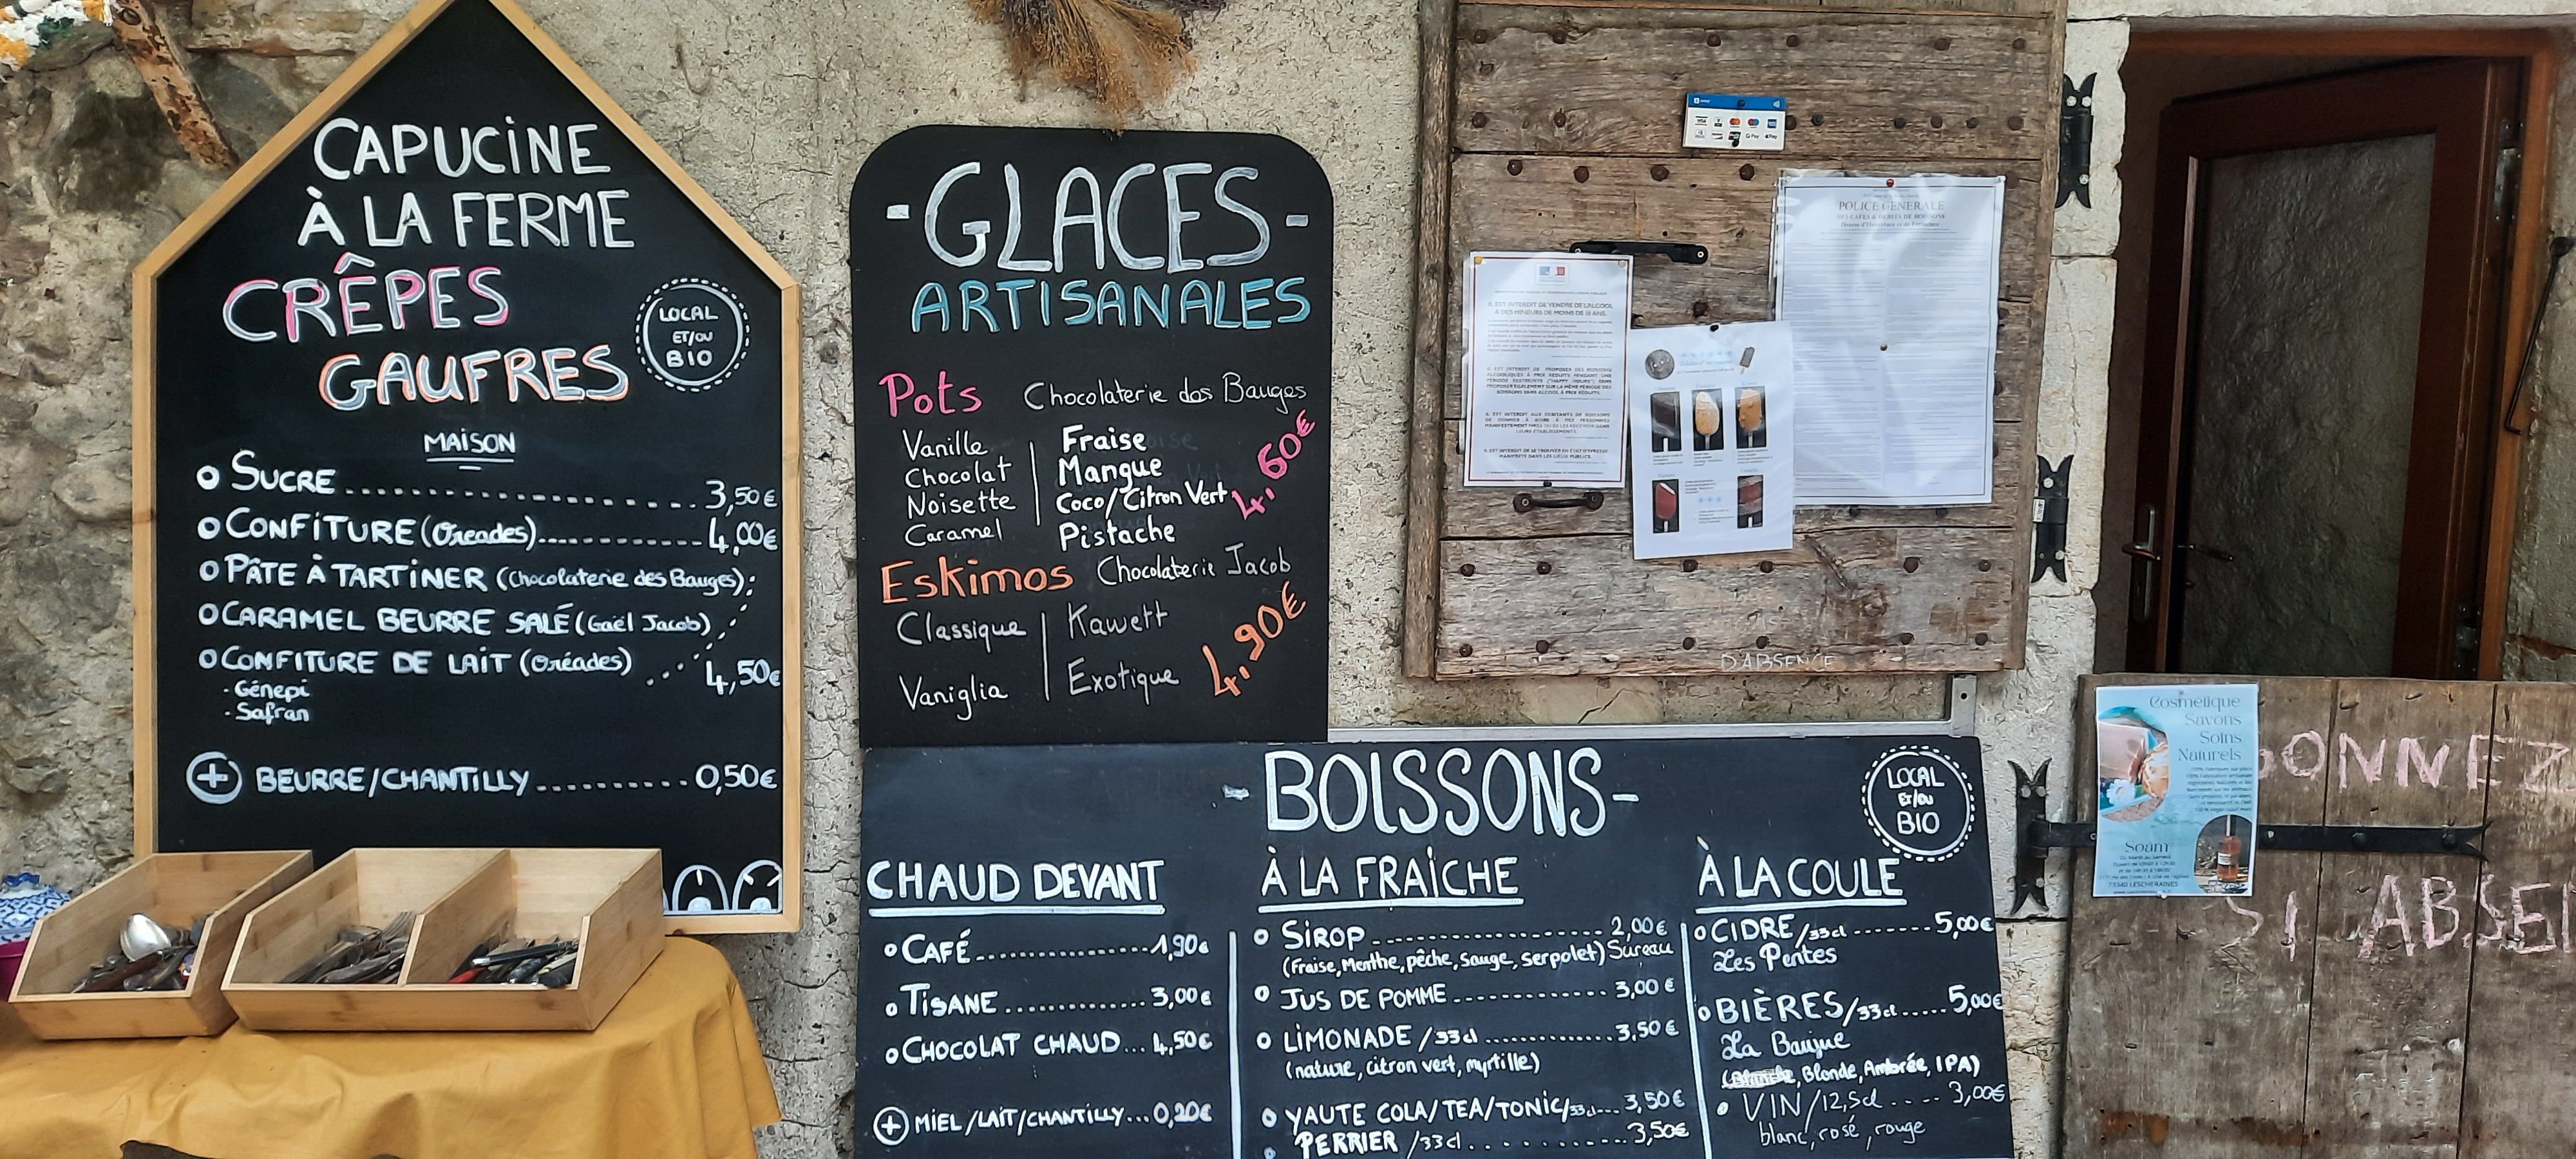 CAPUCINE
À LA FERME
CRÊPES
GAUFRES
LOCAL
ET/OU
BIO
MAISON
SUCRE .......... 3,50€
CONFITURE (Oreades) .......... 4,00€
PÂTE À TARTINER (Chocolaterie des Bauges)
CARAMEL BEURRE SALÉ (Gaël Jacob)
CONFITURE DE LAIT (Oréades) ... 4,50€
- Génepi
- Safran
+ BEURRE/CHANTILLY .......... 0,50€
- GLACES -
ARTISANALES
Pots Chocolaterie des Bauges
Vanille | Fraise
Chocolat | Mangue
Noisette | Coco/Citron Vert
Caramel Pistache
4,60€
Eskimos Chocolaterie Jacob
Classique | Kawett
Vaniglia | Exotique
4,90€
POLICE GENERALE
DES CAFES & DEBITS DE BOISSONS
Heures d'Ouverture et de Fermeture
IL EST INTERDIT DE VENDRE DE L'ALCOOL
À DES MINEURS DE MOINS DE 18 ANS.
D'ABSENCE
- BOISSONS -
LOCAL
ET/OU
BIO
CHAUD DEVANT
CAFÉ .......... 1,90€
TISANE .......... 3,00€
CHOCOLAT CHAUD ... 4,50€
+ MIEL/LAIT/CHANTILLY ... 0,20€
À LA FRAÎCHE
SIROP .......... 2,00€
(Fraise, Menthe, pêche, sauge, serpolet) Sureau
JUS DE POMME .......... 3,00€
LIMONADE /33cl .......... 3,50€
(nature, citron vert, myrtille)
YAUTE COLA/TEA/TONIC/33cl ... 3,50€
PERRIER /33cl .......... 3,50€
À LA COULE
CIDRE /33cl .......... 5,00€
Les Pentes
BIÈRES /33cl ..... 5,00€
La Baujue
(Blanche, Blonde, Ambrée, IPA)
VIN /12,5cl .... 3,00€
blanc, rosé, rouge
Cosmétique
Savons
Soins
Naturels
Soam
73340 LESCHERAINES
SONNEZ
SI ABSE